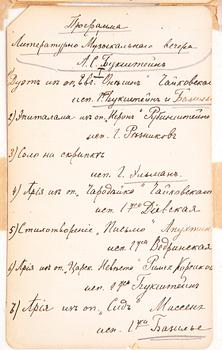 Программа
Литературно Музыкальнаго вечера
Л.С. Букштейнъ
I
Дуэтъ изъ оп. Евг. Онѣгинъ" Чайковскаго
исп.
2) Эпиталама изъ оп. Неронъ" Рубинштейна
исп. Г.
3) Соло на скрипкѣ
исп. Г. Ульманъ.
4) Арія изъ оп. Чародѣйка" Чайковскаго
исп. г-жа
5) Стихотвореніе, Письмо Апухтина
исп. г-жа
6) Арія изъ оп. „Царск. Невѣста" Римск Корсакова
исп. г-жа Букштейнъ
7) Арія изъ оп. „Сидъ" Массенэ
исп. г-жа